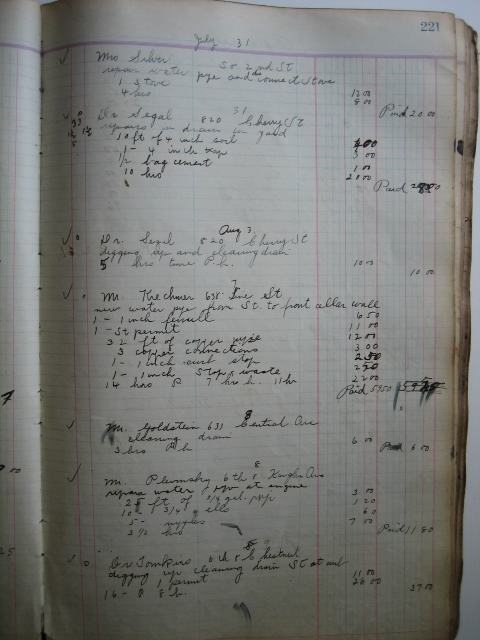 221
July 31
Mrs Silver 2nd St
repair water pipe and connect stove
1 Stove 12 00
4 hrs 8 00
Paid 20.00
31
Dr Segal 820 Cherry St
repairs in drain in yard
10 ft of 4 inch soil 4 00
1 - 4 inch trap 3 00
1/2 bag cement 1 00
10 hrs 20 00
Paid
Aug 3
Dr. Segal 820 Cherry St
digging up and cleaning drain
5 hrs time P. h. 10 00
10 00
7
Mr. Krechmer 638 St
new water pipe from St. to front cellar wall
1 - 1 inch ferrule 6 50
1 - St permit 11 00
32 ft of copper pipe 12 00
3 copper connections 3 00
1 - 1 inch curb stop 2 50
1 - 1 inch Stop & waste 2 50
14 hrs P 7 hrs h. 11 hr 22 00
Paid 59 50
8
Mr. Goldstein 633 Central Ave
cleaning drain
3 hrs P h 6 00
Paid 6 00
8
Mr. 6th &
repairs water pipe at engine
25 ft of 3/4 gal. pipe 3 00
10 - 3/4 ells 1 20
5 - nipples 60
3 1/2 hrs 7 00
Paid 11 80
8
Dr Tomkins 8th & Chestnut
digging up cleaning drain St at curb
1 permit 11 00
16 - 8 8 h. 26 00
37 00